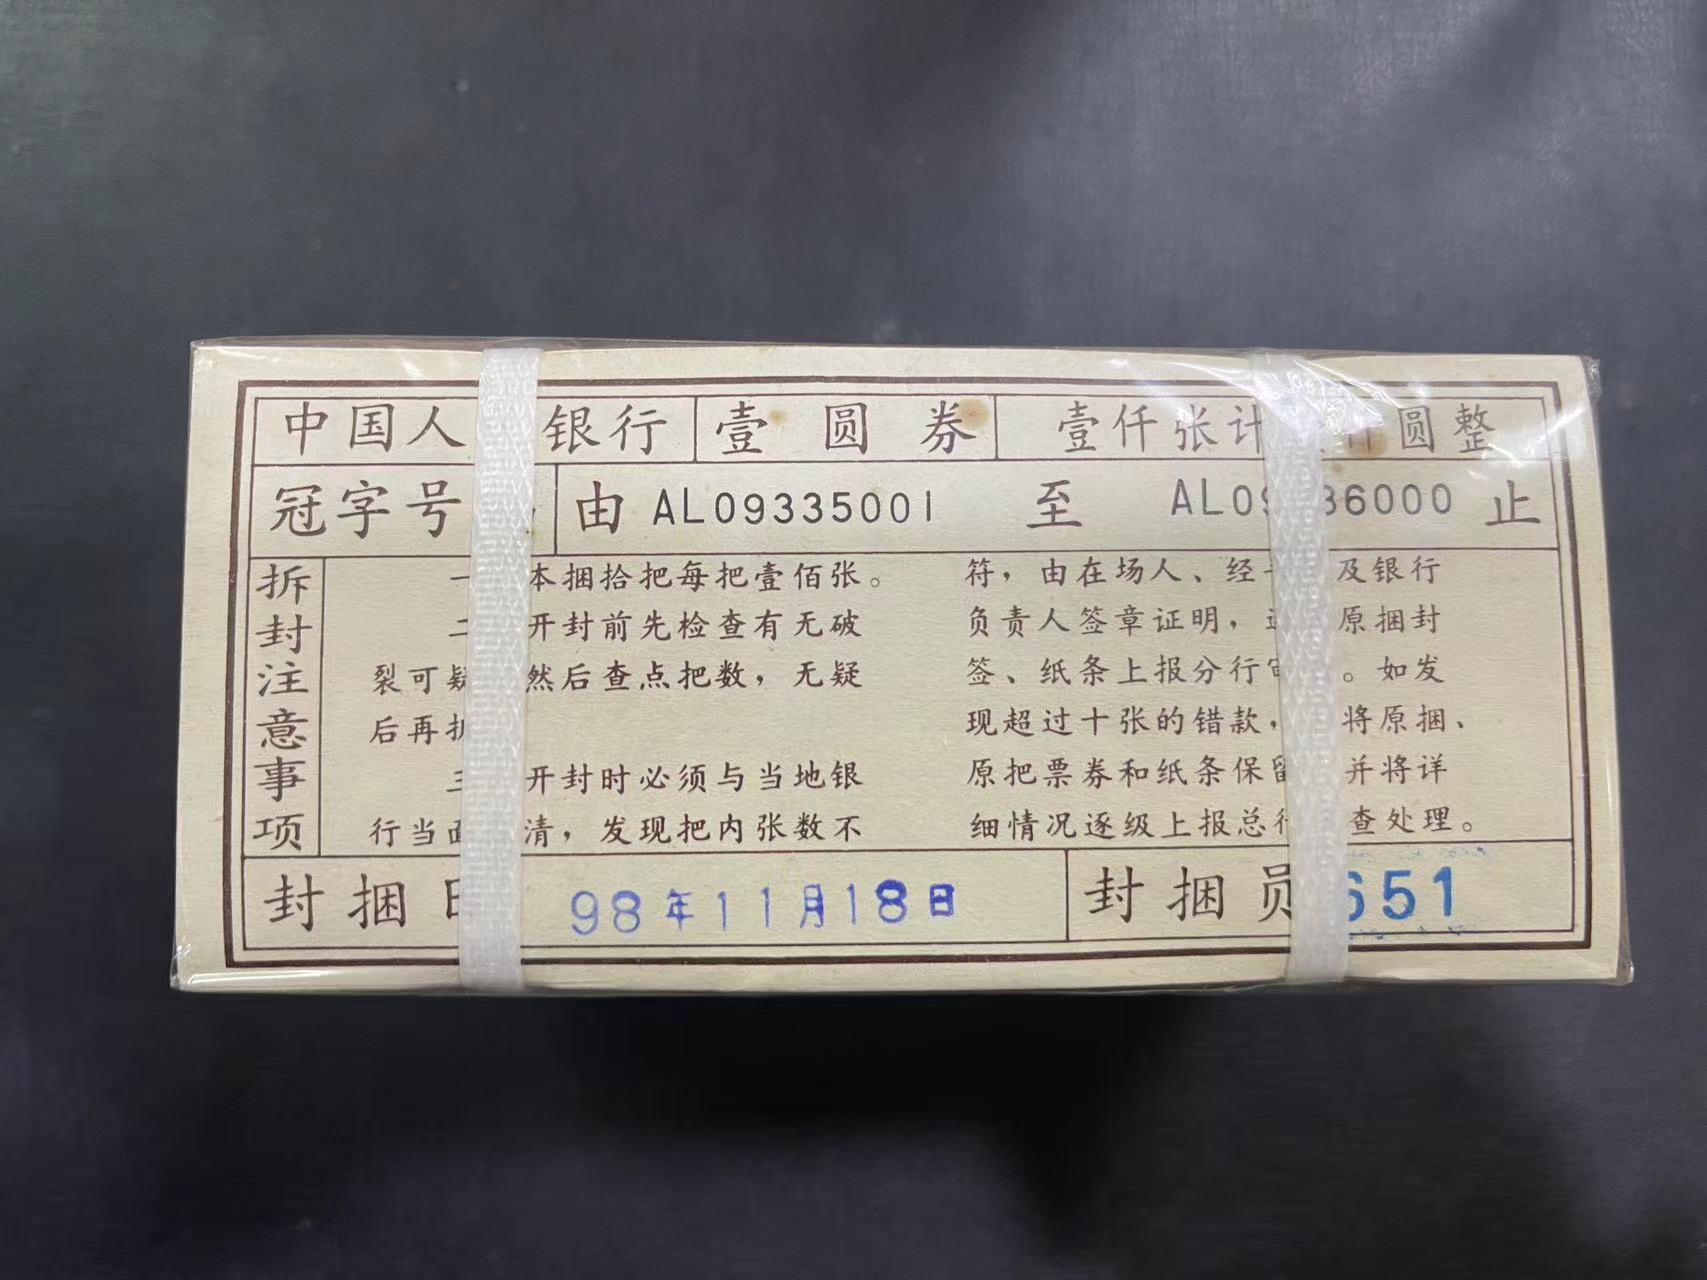 中国人 银行 壹圆券 壹仟张计 仟圆整
冠字号 由 AL09335001 至 AL09 36000 止
拆封注意事项
一 本捆拾把每把壹佰张。
二 开封前先检查有无破
裂可疑 然后查点把数，无疑
后再拆
三 开封时必须与当地银
行当面 清，发现把内张数不
符，由在场人、经 及银行
负责人签章证明， 原捆封
签、纸条上报分行 。如发
现超过十张的错款， 将原捆、
原把票券和纸条保留 并将详
细情况逐级上报总行 查处理。
封捆日 98年11月18日 封捆员 651